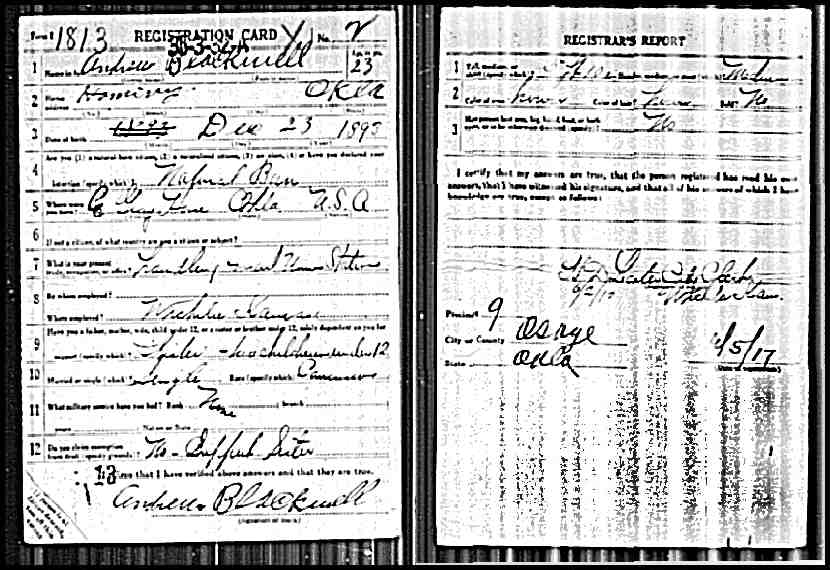 Form 1 1813 REGISTRATION CARD No. 2
1 Name in full Andrew Blackwell 23
2 Home address Hominy Okla
3 Date of birth Dec 23
4 Are you (1) a natural-born citizen, (2) a naturalized citizen, (3) an alien, (4) or have you declared your
intention (specify which)? Natural Born
5 Where were you born? Okla U.S.A
6 If not a citizen, of what country are you a citizen or subject?
7 What is your present trade, occupation, or office? Handling mail Union Station
8 By whom employed?
Where employed? Wichita Kansas
9 Have you a father, mother, wife, child under 12, or a sister or brother under 12, solely dependent on you for
support (specify which)? Sister two children under 12
10 Married or single (which)? Single Race (specify which)? Caucasian
11 What military service have you had? Rank None branch
years Nation or State
12 Do you claim exemption from draft (specify grounds)? No - Support Sister
13 I affirm that I have verified above answers and that they are true.
Andrew Blackwell
(Signature or mark)
REGISTRAR'S REPORT
1 Tall, medium, or short (specify which)? Slender, medium, or stout (which)? Medium
2 Color of eyes Brown Color of hair Brown Bald? No
3 Has person lost arm, leg, hand, foot, or both eyes, or is he otherwise disabled (specify)? No
I certify that my answers are true, that the person registered has read his own
answers, that I have witnessed his signature, and that all of his answers of which I have
knowledge are true, except as follows:
City Clerk
Wichita Kan.
Precinct 9
City or County Osage
State Okla 6/5/17
(Date of registration)